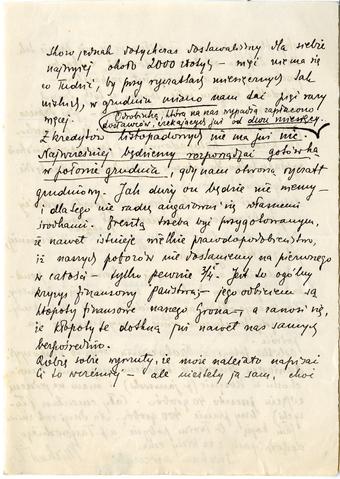 Skoro jednak dotychczas dostawaliśmy dla siebie
najwyżej około 2000 złotych – więc nie ma się
co łudzić, by przy ryczałtach miesięcznych tak
niskich, w grudniu miano nam dać pięć razy
więcej. Odrobinkę, która na nas wypadła zapłacono
dostawców, czekających już od dwu miesięcy.
Z kredytów listopadowych nie ma już nic.
Najwcześniej będziemy rozporządzać gotówką
w połowie grudnia, gdy nam otworzą ryczałt
grudniowy. Jak duży on będzie nie wiemy –
i dlatego nie radzę angażować się własnemi
środkami. Zresztą trzeba być przygotowanym,
że nawet istnieje wielkie prawdopodobieństwo,
iż naszych poborów nie dostaniemy na pierwszego
w całości – tylko pewnie 3/4. Jest to ogólny
kryzys finansowy Państwa – jego odbiciem są
kłopoty finansowe naszego Grona – a zanosi się,
że kłopoty te dotkną już nawet nas samych
bezpośrednio.
Robię sobie wyrzuty, że może należało napisać
Ci to wcześniej – ale niestety ja sam, choć